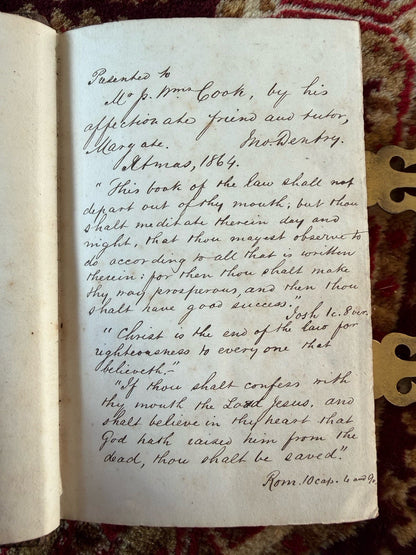 Presented to
Mr J. Wms Cook, by his
affectionate friend and tutor,
Margate. Jno. Dentry.
Xtmas, 1864.
"This book of the law shall not
depart out of thy mouth; but thou
shalt meditate therein day and
night, that thou mayest observe to
do according to all that is written
therein: for then thou shalt make
thy way prosperous, and then thou
shalt have good success."
Josh 1c. 8 ver.
"Christ is the end of the law for
righteousness to every one that
believeth;—
"If thou shalt confess with
thy mouth the Lord Jesus, and
shalt believe in thy heart that
God hath raised him from the
dead, thou shalt be saved."
Rom. 10 cap. 4 and 9.